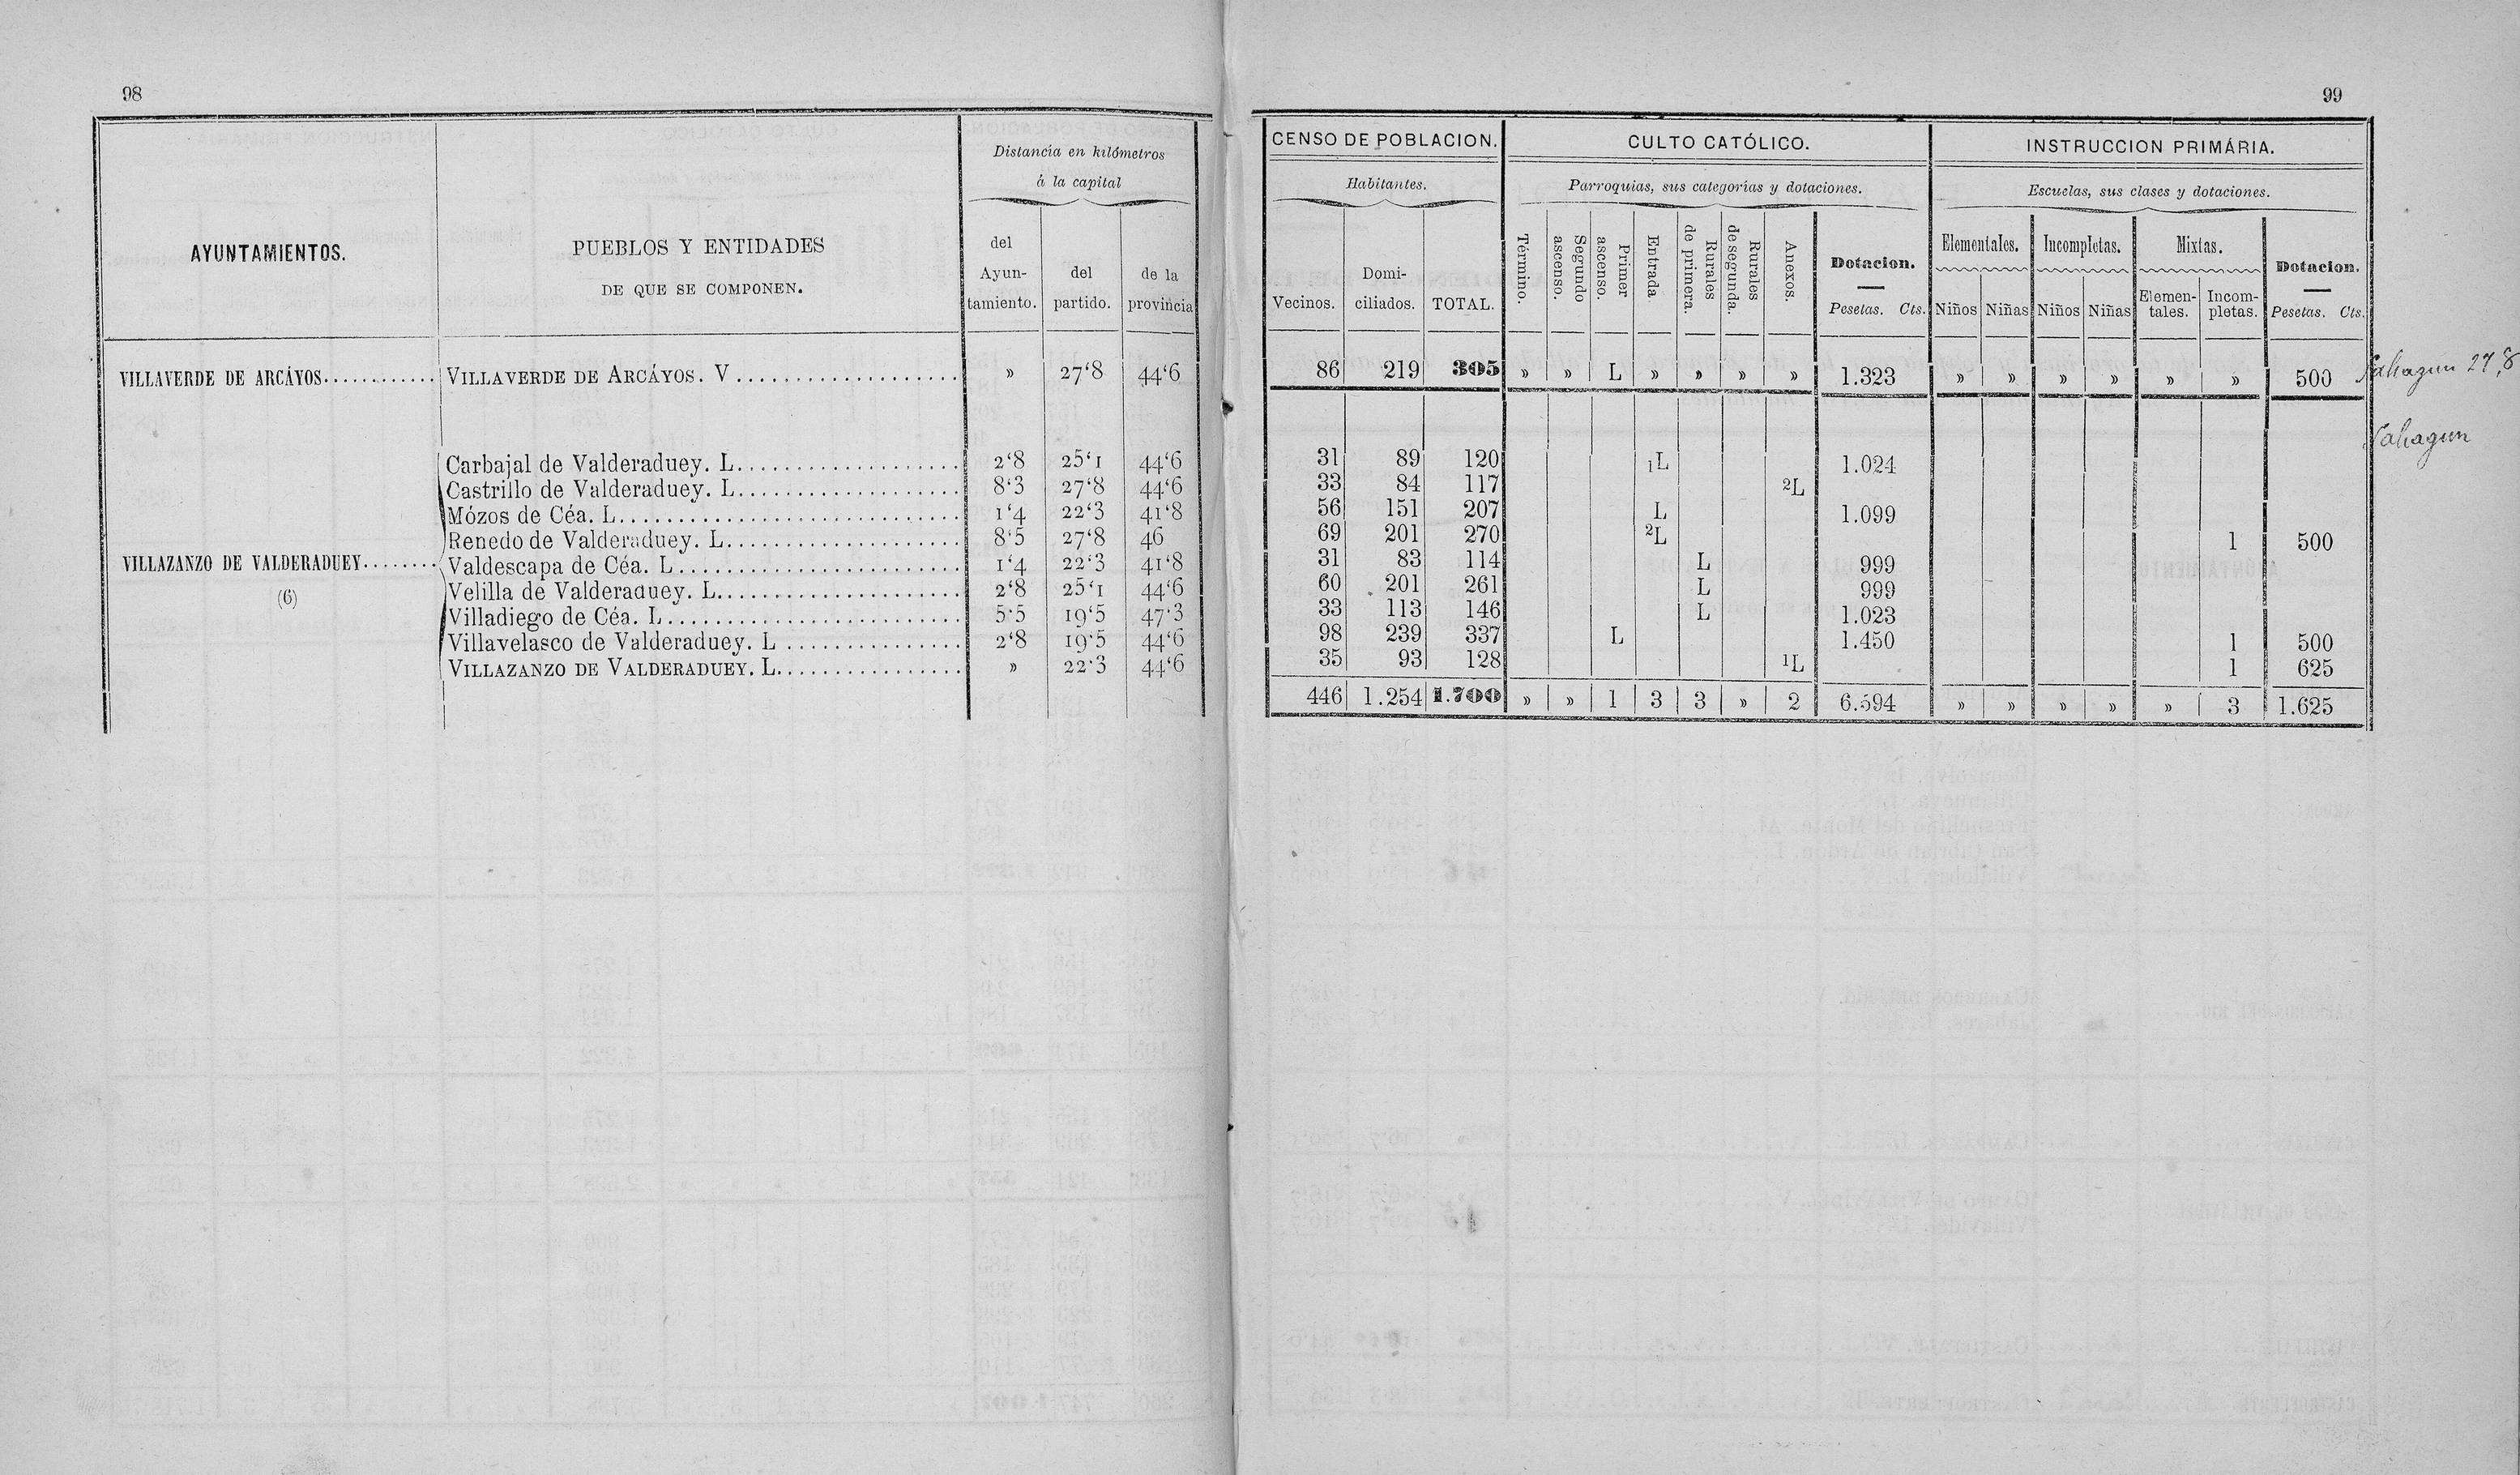 98
AYUNTAMIENTOS.
PUEBLOS Y ENTIDADES
DE QUE SE COMPONEN.
Distancia en kilómetros
á la capital
del Ayun-tamiento.
del partido.
de la provincia
VILLAVERDE DE ARCÁYOS............ VILLAVERDE DE ARCÁYOS. V................... » 27‘8 44‘6
Carbajal de Valderaduey. L................... 2‘8 25‘1 44‘6
Castrillo de Valderaduey. L................... 8‘3 27‘8 44‘6
Mózos de Céa. L............................. 1‘4 22‘3 41‘8
Renedo de Valderaduey. L.................... 8‘5 27‘8 46
VILLAZANZO DE VALDERADUEY........ Valdescapa de Céa. L........................ 1‘4 22‘3 41‘8
(6)
Velilla de Valderaduey. L..................... 2‘8 25‘1 44‘6
Villadiego de Céa. L......................... 5‘5 19‘5 47‘3
Villavelasco de Valderaduey. L ............... 2‘8 19‘5 44‘6
VILLAZANZO DE VALDERADUEY. L................ » 22‘3 44‘6
99
CENSO DE POBLACION.
CULTO CATÓLICO.
INSTRUCCION PRIMÁRIA.
Habitantes.
Parroquias, sus categorías y dotaciones.
Escuelas, sus clases y dotaciones.
Vecinos.
Domi-ciliados.
TOTAL.
Término.
Segundo ascenso.
Primer ascenso.
Entrada
Rurales de primera.
Rurales de segunda.
Anexos.
Dotacion.
Pesetas. Cts.
Elementales.
Niños Niñas
Incompletas.
Niños Niñas
Mixtas.
Elemen-tales.
Incom-pletas.
Dotacion.
Pesetas. Cts.
86 219 305 » » L » » » » 1.323 » » » » » » 500 Sahagun 27,8
Sahagun
31 89 120 1L 1.024
33 84 117 2L
56 151 207 L 1.099
69 201 270 2L 1 500
31 83 114 L 999
60 201 261 L 999
33 113 146 L 1.023
98 239 337 L 1.450 1 500
35 93 128 1L 1 625
446 1.254 1.700 » » 1 3 3 » 2 6.594 » » » » » 3 1.625